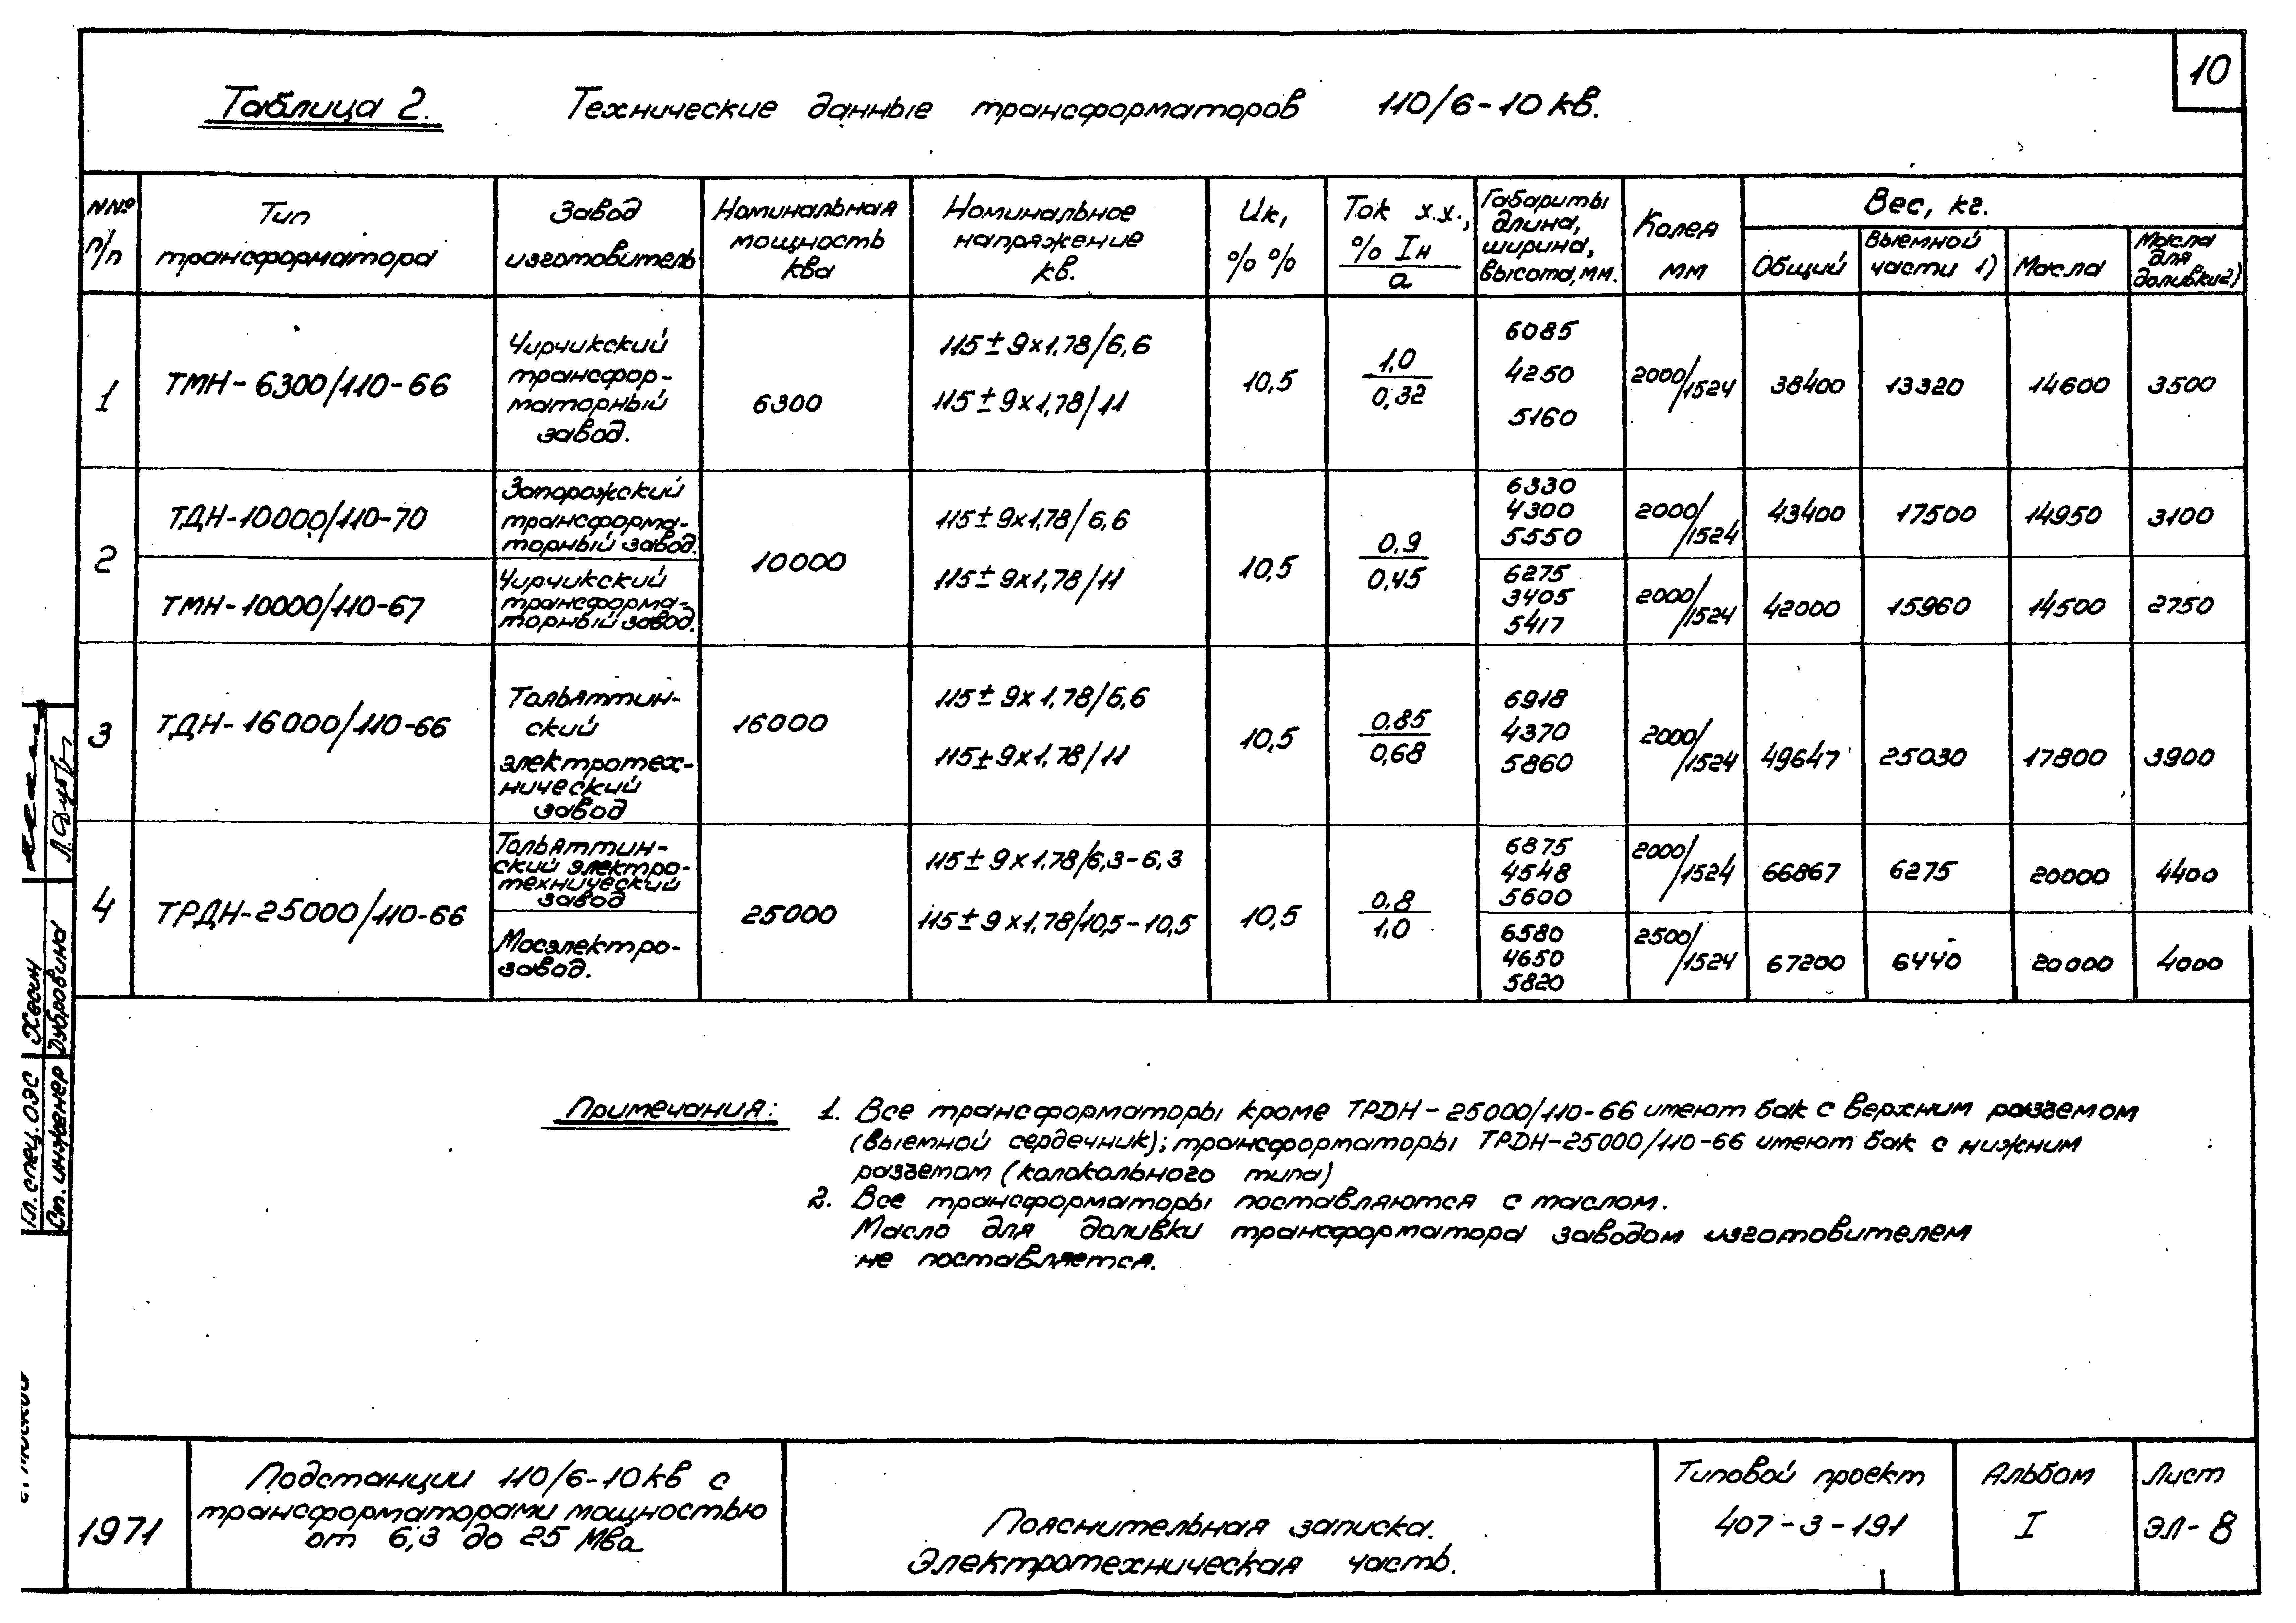 10
Таблица 2. Технические данные трансформаторов 110/6-10 кв.
№№ п/п
Тип трансформатора
Завод изготовитель
Номинальная мощность ква
Номинальное напряжение кв.
Uк, % %
Ток х.х., % Iн / а
Габариты длина, ширина, высота, мм.
Колея мм
Вес, кг.
Общий
Выемной части 1)
Масла
Масла для доливки 2)
1
ТМН-6300/110-66
Чирчикский
трансфор-
маторный
завод.
6300
115±9х1,78/6,6
115±9х1,78/11
10,5
1,0
0,32
6085
4250
5160
2000/1524
38400
13320
14600
3500
2
ТДН-10000/110-70
Запорожский
трансформа-
торный завод.
10000
115±9х1,78/6,6
115±9х1,78/11
10,5
0,9
0,45
6330
4300
5550
2000/1524
43400
17500
14950
3100
ТМН-10000/110-67
Чирчикский
трансформа-
торный завод.
6275
3405
5417
2000/1524
42000
15960
14500
2750
3
ТДН-16000/110-66
Тольяттин-
ский
электротех-
нический
завод
16000
115±9х1,78/6,6
115±9х1,78/11
10,5
0,85
0,68
6918
4370
5860
2000/1524
49647
25030
17800
3900
4
ТРДН-25000/110-66
Тольяттин-
ский электро-
технический
завод
25000
115±9х1,78/6,3-6,3
115±9х1,78/10,5-10,5
10,5
0,8
1,0
6875
4548
5600
2000/1524
66867
6275
20000
4400
Мосэлектро-
завод.
6580
4650
5820
2500/1524
67200
6440
20000
4000
Примечания: 1. Все трансформаторы кроме ТРДН-25000/110-66 имеют бак с верхним разъемом
(выемной сердечник); трансформаторы ТРДН-25000/110-66 имеют бак с нижним
разъемом (колокольного типа)
2. Все трансформаторы поставляются с маслом.
Масло для доливки трансформатора заводом изготовителем
не поставляется.
Гл. спец. ОЭС Хесин
Ст. инженер Дубровина
г. Москва
1971
Подстанции 110/6-10кв с
трансформаторами мощностью
от 6,3 до 25 Мва
Пояснительная записка.
Электротехническая часть.
Типовой проект
407-3-191
Альбом
I
Лист
ЭЛ-8